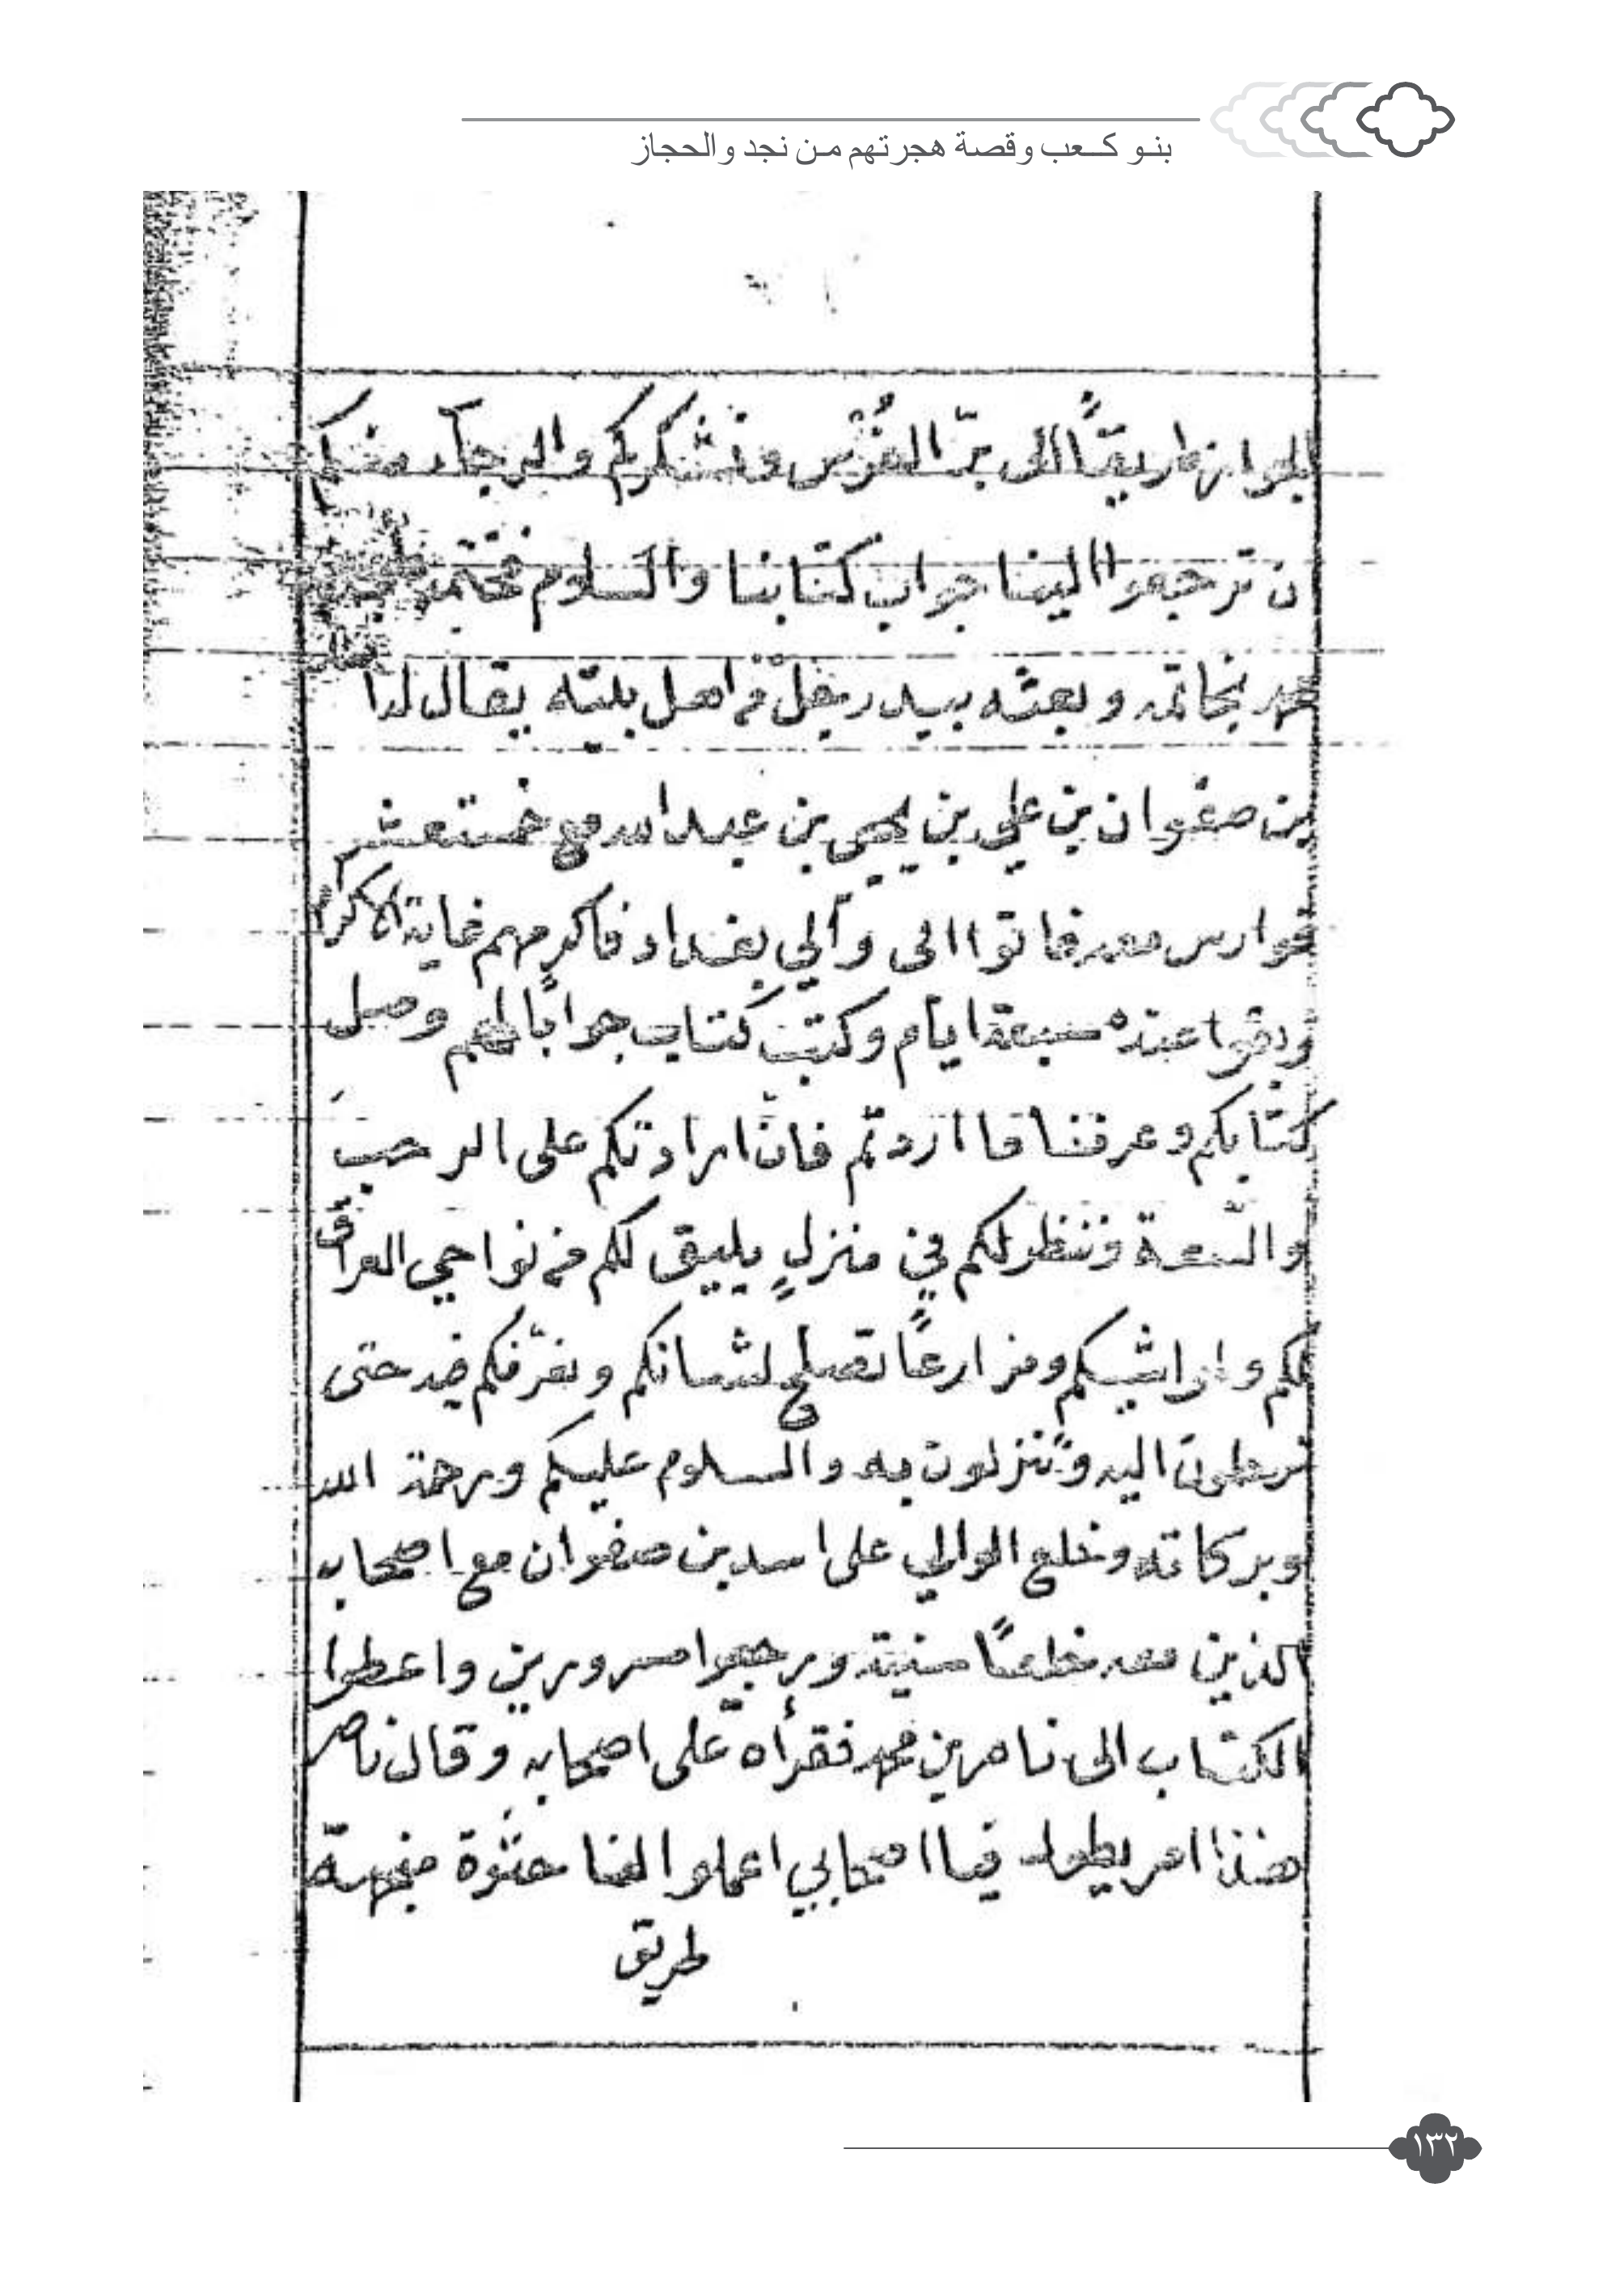 بنو كعب وقصة هجرتهم من نجد والحجاز
الجواز طريقًا الى برّ الفُرْس ونشكركم والرجاء منكم
ن ترجعوا الينا جواب كتابنا والسلام فختمه
محمد بخاتمه وبعثه بيد رجلٌ من اهل بيته يقال له
بن صفوان بن علي بن يحيى بن عبد الله مع خمستعشر
فوارس معه فاتوا الى وآلي بغداد فاكرمهم غاية الاكرام
وبقوا عنده سبعة ايام وكتب كتاب جوابًا لهم وصل
كتابكم وعرفنا ما اردتم فانّ ارادتكم على الرحب
والسّعة وننظر لكم في منزلٍ يليق لكم من نواحي العراق
لكم ولمواشيكم ومزارعًا تصلح لشانكم ونعرّفكم فيه حتى
ترحلون اليه وتنزلون به والسلام عليكم ورحمة الله
وبركاته وخلع الوالي على اسد بن صفوان مع اصحابه
الذين معه خلعًا سنية ورجعوا مسرورين واعطوا
الكتاب الى ناصر بن محمد فقرأه على اصحابه وقال ناصر
هذا امر يطول فيا اصحابي اعملوا لنا من جهة
طريق
١٣٢